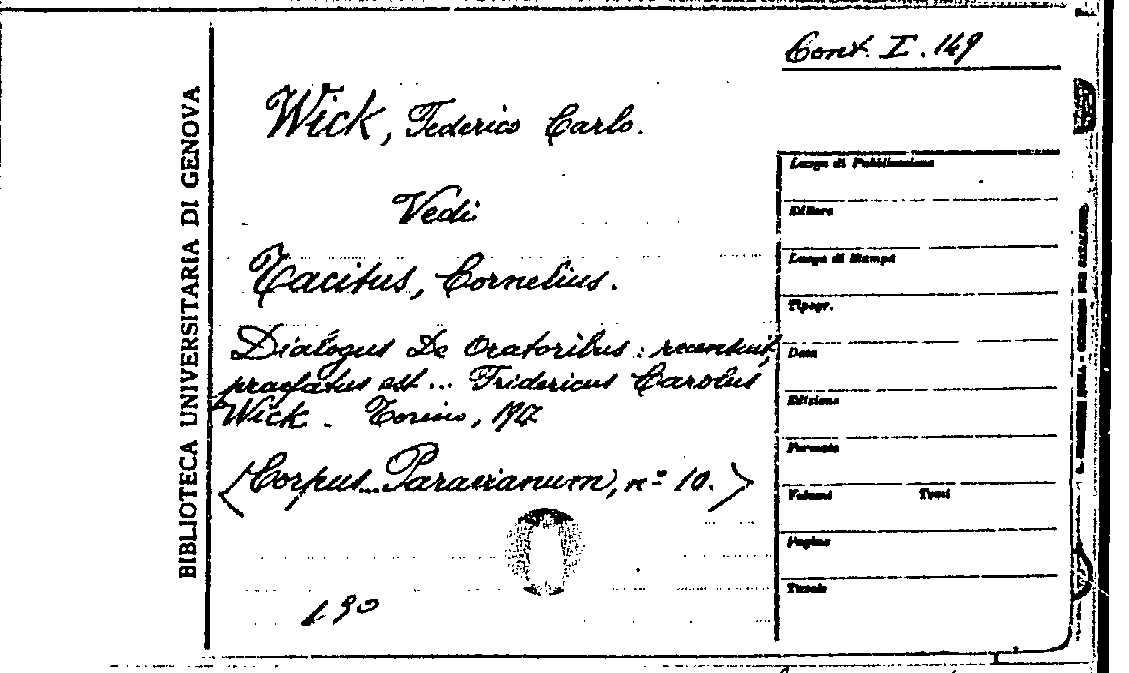 Cont. I. 149
BIBLIOTECA UNIVERSITARIA DI GENOVA
Wick, Federico Carlo.
Vedi
Tacitus, Cornelius.
Dialogus De Oratoribus : recensuit,
praefatus est ... Fridericus Carolus
Wick. Torino,
<Corpus... Paravianum, nº 10.>
Luogo di Pubblicazione
Editore
Luogo di Stampa
Tipogr.
Data
Edizione
Formato
Volumi Tomi
Pagine
Tavole
190